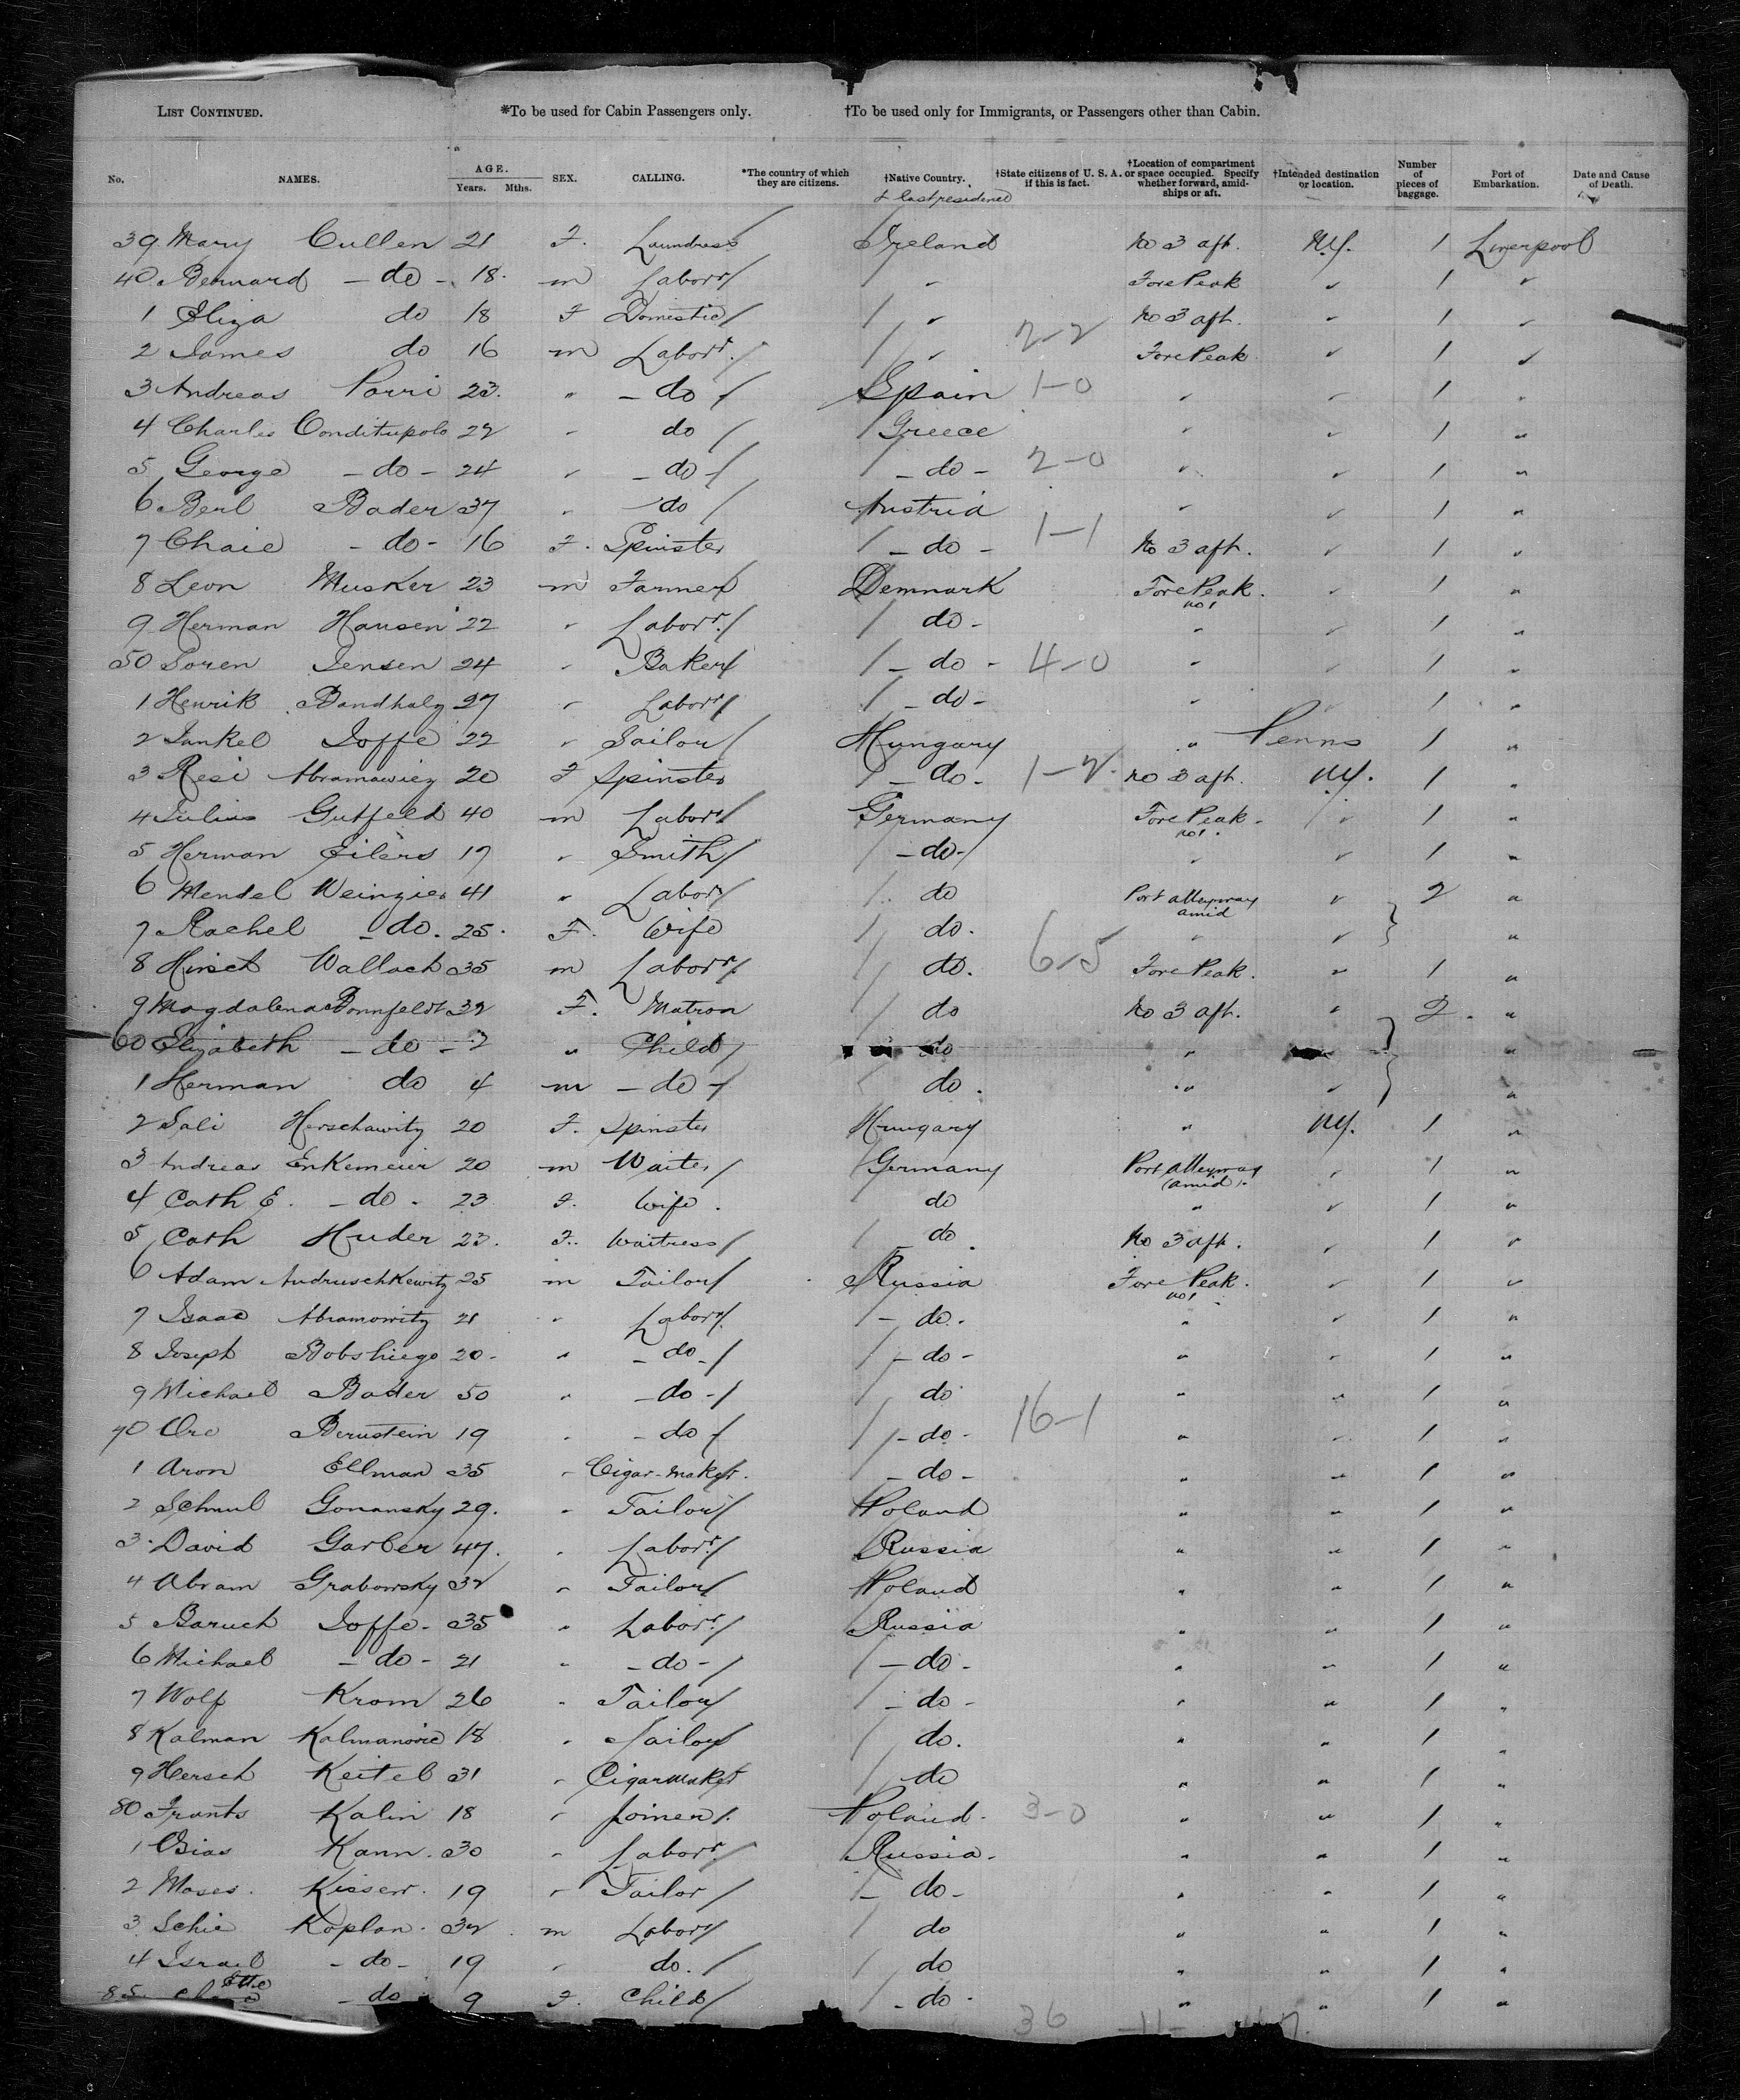 LIST CONTINUED. *To be used for Cabin Passengers only. †To be used only for Immigrants, or Passengers other than Cabin.
No. NAMES. AGE. Years. Mths. SEX. CALLING. *The country of which they are citizens. †Native Country. & last residence †State citizens of U. S. A. if this is fact. †Location of compartment or space occupied. Specify whether forward, amid-ships or aft. †Intended destination or location. Number of pieces of baggage. Port of Embarkation. Date and Cause of Death.
39 Mary Cullen 21 F. Laundress Ireland No 3 aft. N.Y. 1 Liverpool
40 Bernard - do - 18 m Labor / " Fore Peak " 1 "
1 Eliza do 18 F Domestic / " No 3 aft. " 1 "
2 James do 16 m Labor / " 2-2 Fore Peak " 1 "
3 Andreas Porri 23. " - do / Spain 1-0 " " 1 "
4 Charles Conditupolo 22 " do / Greece " " 1 "
5 George - do - 24 " - do / - do - 2-0 " " 1 "
6 Berl Bader 37 " do / Austria " " 1 "
7 Chaie - do - 16 F. Spinster - do - 1-1 No 3 aft. " 1 "
8 Leon Musker 23 m Farmer Denmark Fore Peak. no 1 " 1 "
9 Herman Hansen 22 " Labor / do - " " 1 "
50 Soren Jensen 24 " Baker / - do - 4-0 " " 1 "
1 Henrik Bandholz 27 " Labor / - do - " " 1 "
2 Jankel Joffe 22 " Sailor / Hungary " Penns 1 "
3 Resi Abramawiez 20 F Spinster - do - 1-2 No 3 aft. N.Y. 1 "
4 Julius Gutfeld 40 m Labor Germany Fore Peak no 1. " 1 "
5 Herman Eilers 17 " Smith / - do - " " 1 "
6 Mendel Weinzier 41 " Labor / do Port alleyway amid " 2 "
7 Rachel - do. 25. F. Wife do. " " "
8 Hirsch Wallach 35 m Labor do. 6-5 Fore Peak. " 1 "
9 Magdalena Bonnfeldt 32 F. Matron do No 3 aft. " 2. "
60 Elizabeth - do - 2 " Child / do " " "
1 Herman do 4 m - do - do. " " "
2 Sali Herschawitz 20 F. Spinster Hungary " N.Y. 1 "
3 Andreas Enkemeier 20 m Waiter / Germany Port alleyway (amid). " 1 "
4 Cath E. - do - 23 F. Wife. do " " 1 "
5 Cath Huder 23. F. Waitress / do. No 3 aft. " 1 "
6 Adam Andruschkewitz 25 m Tailor / Russia Fore Peak. no 1 " 1 "
7 Isaac Abramowitz 21 " Labor - do. " " 1 "
8 Joseph Bobshiego 20 - " - do - / - do - " " 1 "
9 Michael Bader 50 " - do - / do " " 1 "
70 Ore Bernstein 19 " - do / - do - 16-1 " " 1 "
1 Aron Ellman 35 " Cigar-maker. - do - " " 1 "
2 Schmul Gomansky 29. " Tailor / Poland " " 1 "
3 David Garber 47. " Labor / Russia " " 1 "
4 Abram Grabowsky 32 " Tailor / Poland " " 1 "
5 Baruch Joffe - 35 " Labor / Russia " " 1 "
6 Michael - do - 21 " - do - / - do - " " 1 "
7 Wolf Krom 26 " Tailor / - do - " " 1 "
8 Kalman Kalmanovic 18 " Sailor do. " " 1 "
9 Hersch Keitel 31 " Cigarmaker do " " 1 "
80 Frants Kalin 18 " Joiner /. Poland. 3-0 " " 1 "
1 Osias Kann. 30 " Labor / Russia. " " 1 "
2 Moses. Kisserr. 19 " Tailor / - do - " " 1 "
3 Schie Koplan. 32 m Labor do " " 1 "
4 Israel - do - 19 " do. / do " " 1 "
85 Ette - do 9 F. Child / - do - " " 1 "
36 -11- 47.